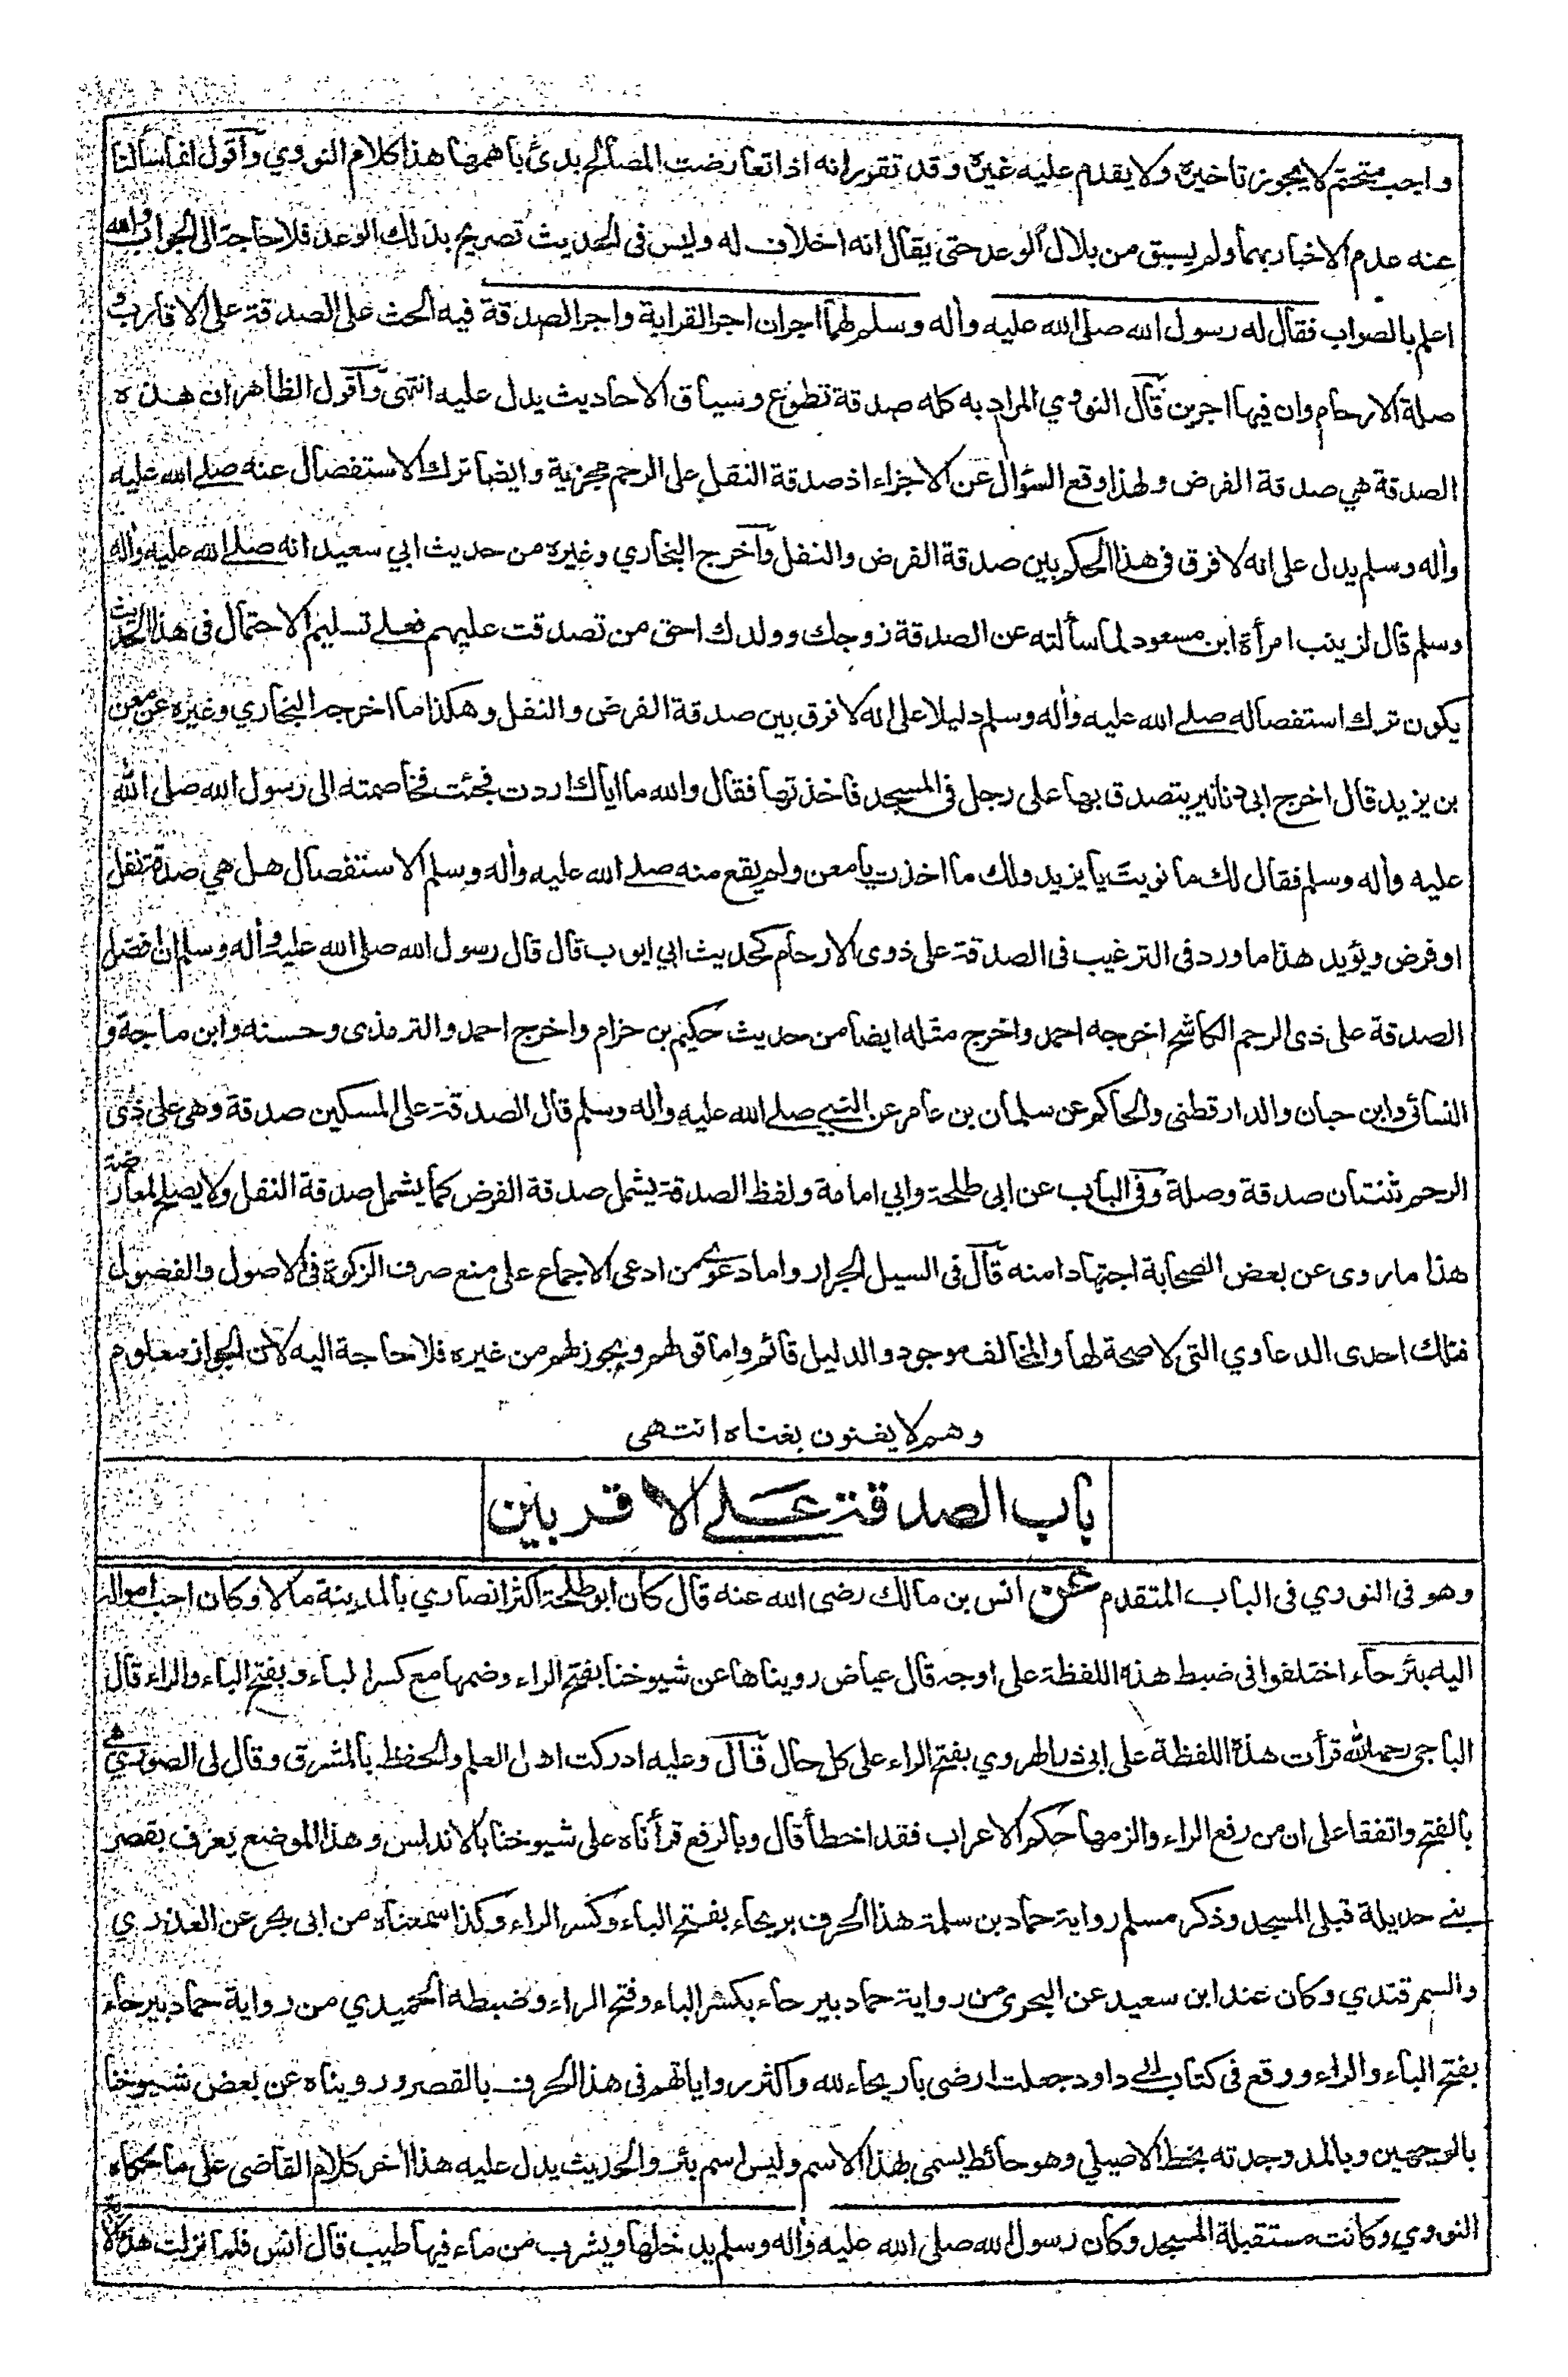 واجب متحتم لا يجوز تاخيره ولا يقدم عليه غيره وقد تقرر انه اذا تعارضت المصالح بدئ باهمها هذا كلام النووي وأقول انما سألنا
عنه عدم الاخبار بهما ولم يسبق من بلال الوعد حتى يقال انه اخلاف له وليس فى الحديث تصريح بذلك الوعد فلا حاجة الى الجواب والله
اعلم بالصواب فقال له رسول الله صلى الله عليه وأله وسلم لهما اجران اجر القرابة واجر الصدقة فيه الحث على الصدقة على الاقارب و
صلة الارحام وان فيها اجرين قال النووي المراد به كله صدقة تطوع وسياق الاحاديث يدل عليه انتهى وأقول الظاهر ان هذه
الصدقة هي صدقة الفرض ولهذا وقع السؤال عن الاجزاء اذ صدقة النفل على الرحم مجزية وايضا ترك الاستفصال عنه صلے الله عليه
وأله وسلم يدل على انه لا فرق فى هذا الحكم بين صدقة الفرض والنفل وأخرج البخاري وغيره من حديث ابي سعيد انه صلے الله عليه وأله
وسلم قال لزينب امرأة ابن مسعود لما سألته عن الصدقة زوجك وولدك احق من تصدقت عليهم فعلے تسليم الاحتمال فى هذا الحديث
يكون ترك استفصاله صلے الله عليه وأله وسلم دليلا على انه لا فرق بين صدقة الفرض والنفل وهكذا ما اخرجه البخاري وغيره عن معن
بن يزيد قال اخرج ابى دنانير يتصدق بها على رجل فى المسجد فاخذتها فقال والله ما اياك اردت فجئت فخاصمته الى رسول الله صلى الله
عليه وأله وسلم فقال لك ما نويت يا يزيد ولك ما اخذت يا معن ولم يقع منه صلے الله عليه وأله وسلم الاستفصال هل هي صدقة نفل
او فرض ويؤيد هذا ما ورد فى الترغيب فى الصدقة على ذوى الارحام كحديث ابي ايوب قال قال رسول الله صلى الله عليه وأله وسلم ان افضل
الصدقة على ذى الرحم الكاشح اخرجه احمد واخرج مثله ايضا من حديث حكيم بن حزام واخرج احمد والترمذى وحسنه وابن ماجة و
النسائى وابن حبان والدارقطنى والحاكم عن سلمان بن عامر عن النبي صلے الله عليه وأله وسلم قال الصدقة على المسكين صدقة وهى على ذى
الرحم ثنتان صدقة وصلة وفى الباب عن ابى طلحة وابي امامة ولفظ الصدقة يشمل صدقة الفرض كما يشمل صدقة النفل ولا يصلح لمعارضة
هذا ما روى عن بعض الصحابة اجتهادا منه قال فى السيل الجرار واما دعوى من ادعى الاجماع على منع صرف الزكوة فى الاصول والفصول
فتلك احدى الدعاوي التى لا صحة لها والمخالف موجود والدليل قائم واما قولهم ويجوز لهم من غيره فلا حاجة اليه لان الجواز معلوم
وهم لا يغنون بغناه انتهى
باب الصدقة عَلے الاقربين
وهو فى النووي فى الباب المتقدم عن انس بن مالك رضى الله عنه قال كان ابو طلحة اكثر انصاري بالمدينة مالا وكان احب امواله
اليه بئر حاء اختلفوا فى ضبط هذه اللفظة على اوجه قال عياض رويناها عن شيوخنا بفتح الراء وضمها مع كسر الباء وبفتح الباء والراء قال
الباجى رحمه الله قرأت هذه اللفظة على ابى ذر الهروي بفتح الراء على كل حال قال وعليه ادركت اهل العلم والحفظ بالمشرق وقال لى الصوري هي
بالفتح واتفقا على ان من رفع الراء والزمها حكم الاعراب فقد اخطأ قال وبالرفع قرأناه على شيوخنا بالاندلس وهذا الموضع يعرف بقصر
بنے حديلة قبلى المسجد وذكر مسلم رواية حماد بن سلمة هذا الحرف بريحاء بفتح الباء وكسر الراء وكذا سمعناه من ابى بحر عن العذري
والسمرقندي وكان عند ابن سعيد عن البحرى من رواية حماد بيرحاء بكسر الباء وفتح الراء وضبطه الحميدي من رواية حماد بيرحاء
بفتح الباء والراء ووقع فى كتاب ابى داود جعلت ارضى باريحاء لله واكثر رواياتهم فى هذا الحرف بالقصر ورويناه عن بعض شيوخنا
بالوجهين وبالمد وجدته بخط الاصيلي وهو حائط يسمى بهذا الاسم وليس اسم بئر والحديث يدل عليه هذا أخر كلام القاضى على ما حكاه
النووي وكانت مستقبلة المسجد وكان رسول الله صلى الله عليه وأله وسلم يدخلها ويشرب من ماء فيها طيب قال انس فلما نزلت هذه الأية